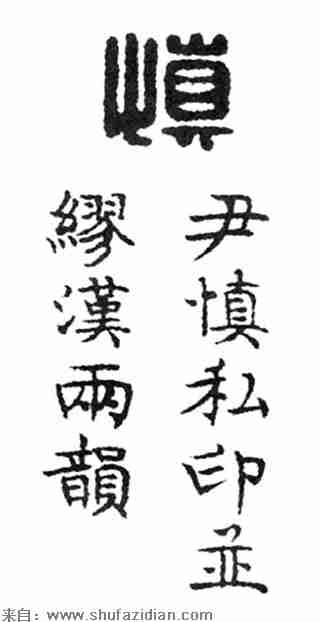 慎
尹慎私印並
繆漢兩韻
来自：www.shufazidian.com